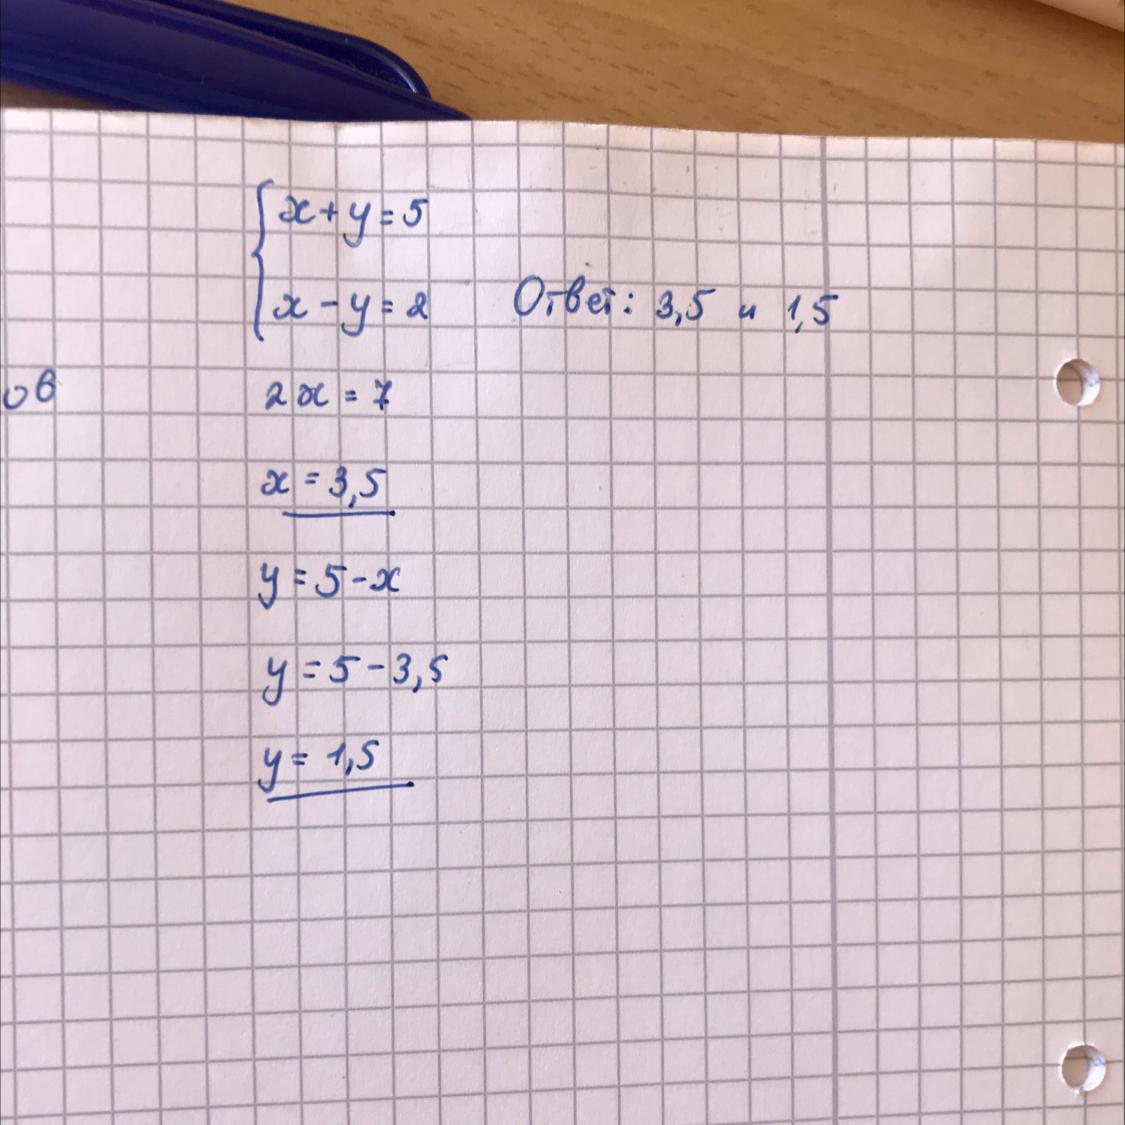 x + y = 5
x - y = 2 Ответ: 3,5 и 1,5
ов 2x = 7
x = 3,5
y = 5 - x
y = 5 - 3,5
y = 1,5